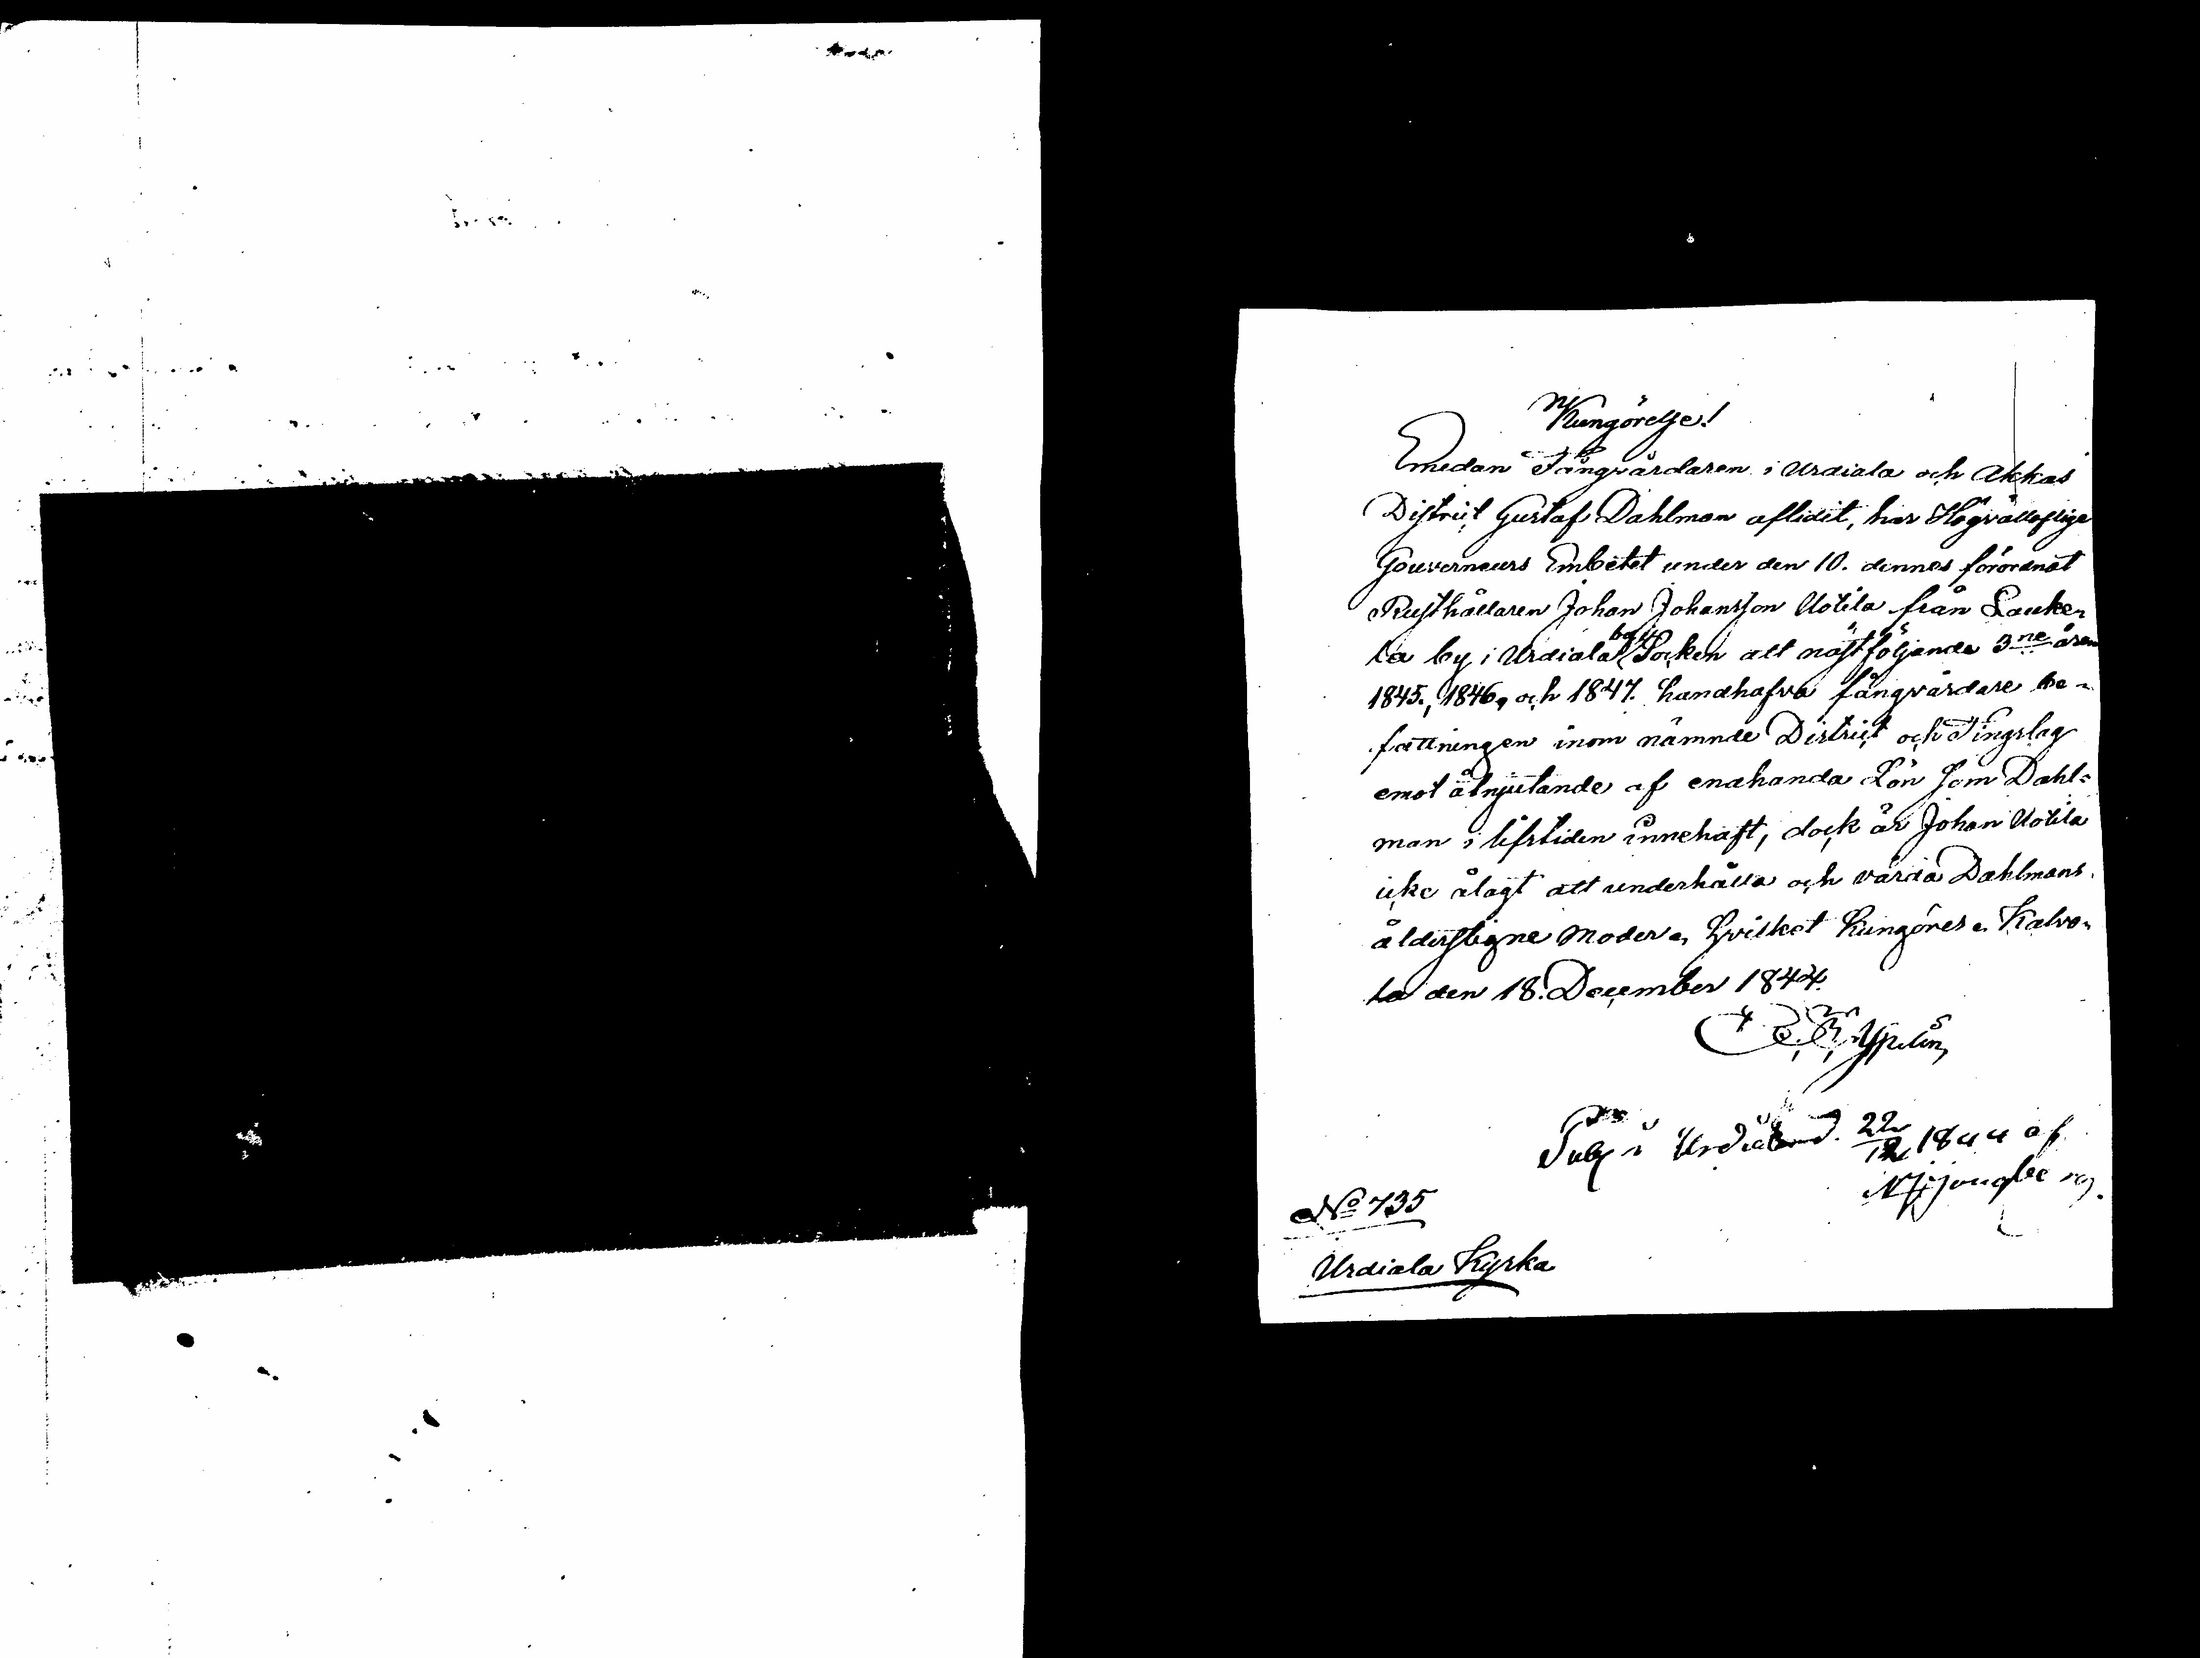 Kungörelse!
Emedan Fångvårdaren i Urdiala och Akkas
District Gustaf Dahlman aflidit, har Högvälloflige
Gouverneurs Embetet under den 10. dennes förordnat
Rusthållaren Johan Johansson Uotila från Lauke-
la by i Urdiala Socken att nästföljande 3ne åren
1845., 1846, och 1847. handhafva fångvårdare be-
fattningen inom nämnde District och Tingslag
emot åtnjutande af enahanda Lön som Dahl-
man i lifstiden innehaft, dock är Johan Uotila
icke ålagt att underhålla och vårda Dahlmans
ålderstigne Moder, Hvilket Kungöres. Kalvo-
la den 18. December 1844.
Publ i Urdiala d. 22/12 1844 af
No 735
Urdiala Kyrka